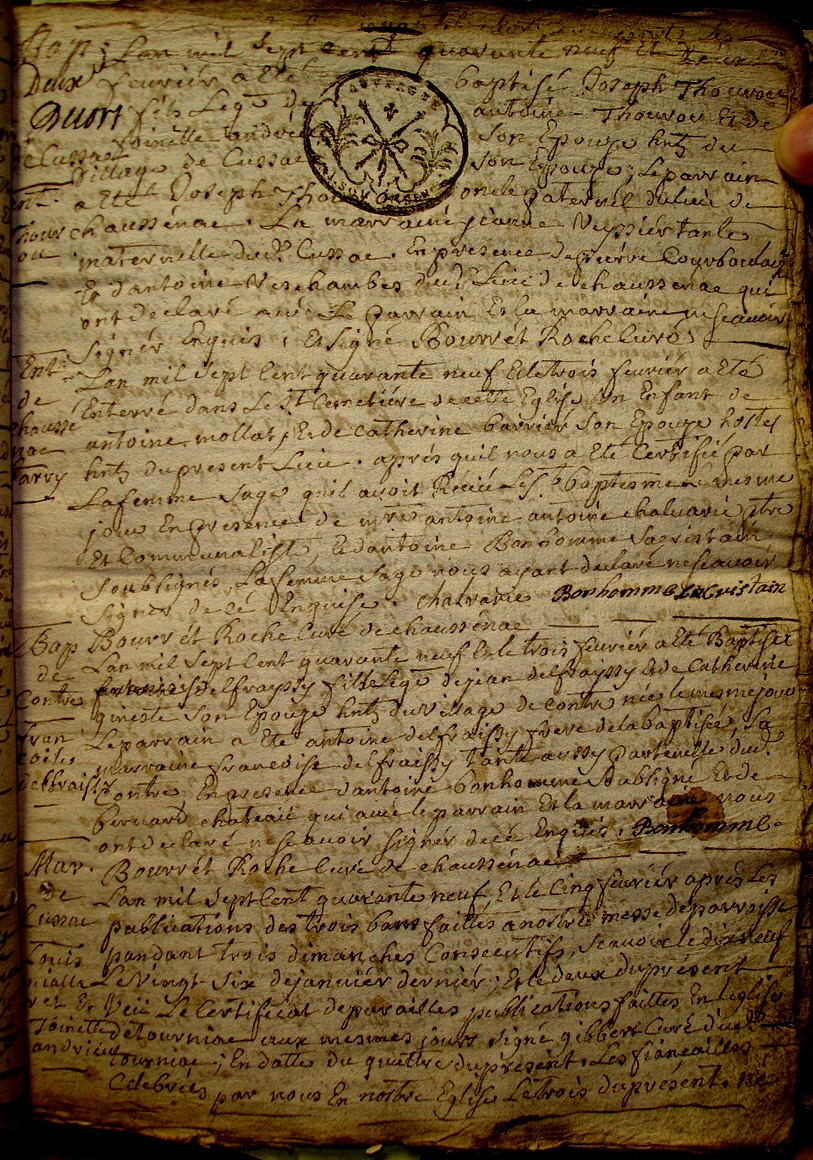 Bap: Lan mil sept cent quarante neuf et le deux
Deux fevriér a eté baptisé Joseph Thouvou
Duort fils Lege de antoine Thouvou Et de
toinette andrieu son Epouze hnts du
de Cussac village de Cussac son Epouze; Le parrain
ant: a eté Joseph Thou oncle paternel du lieu de
Thouv chaussénac. La marraine jeanne Veyssiér tante
ou maternelle dud. Cussac. En presence de pierre Courboulaix
Et dantoine Veschambes dud. Lieu de chaussenac qui
ont declaré avec Le parrain Et la marraine ne scavoir
signér Enquis; Et signé Bourrét Roche Curé
Ent: Lan mil sept Cent quarante neuf Et le trois fevriér a eté
de Enterré dans Le St Cemetiére de cette Eglise un Enfant de
chaussé antoine mollat, Et de Catherine barriér son Epouze hostes
nac hnts du present Lieu. aprés quil nous a eté Certifié par
La femme sage quil avoit Reçeu le St baptesme Le mesme
jour En presence de mre antoine antoine chalvarie ptre
Et Communaliste, Et dantoine Bonhomme Sacristain
soubsignés, La femme sage nous ayant declaré ne scavoir
signér de ce Enquise. Chalvarie Bonhomme Sacristain
Bourrét Roche Curé de chaussénac
Bap Lan mil sept cent quarante neuf Et le trois fevriér a eté Baptisée
de delfraissy fille Lege de jean delfraissy Et de Catherine
Contre son Epouze hnts du village de contre née le mesme jour
fran Le parrain a eté antoine delfraissy frere de la baptisée, La
coise marraine francoise delfraissy tante aussy paternelle dud.
delfraissy Contre. En presence dantoine bonhomme soubsigné Et de
bernard chateau qui avec le parrain Et la marraine nous
ont declaré ne scavoir signér de ce Enquis, Bonhomme
Bourrét Roche Curé de chaussénac
Mar. Lan mil sept Cent quarante neuf, Et le Cinq fevriér aprés Les
de publications des trois bans faittes a nostre messe de parroisse
Cussac pandant trois dimanches Consecutifs, scavoir le dixneuf
Louis Le vingt six de janviér dernier, Et le deux du présent
Veu Le Certificat de parailles publications faittes En leglise
Toinette de tourniac aux mesmes jours signé gibbert Curé dud.
andrieu tourniac; En datte du quattre du present. Les fiancailles
Celebrées par nous En nostre Eglise Le trois du présent.